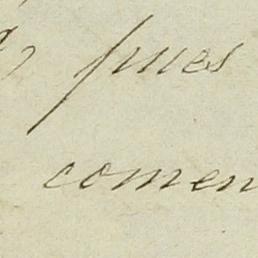 pues
comen